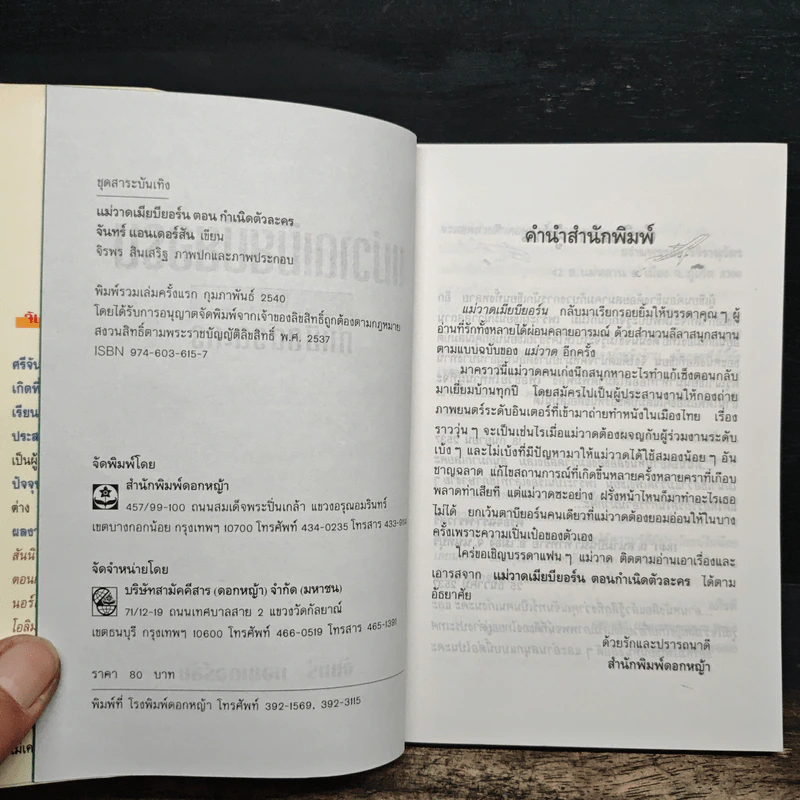 ชุดสาระบันเทิง
แม่วาดเมียบียอร์น ตอน กำเนิดตัวละคร
จันทร์ แอนเดอร์สัน เขียน
จิรพร สินเสริฐ ภาพปกและภาพประกอบ
พิมพ์รวมเล่มครั้งแรก กุมภาพันธ์ 2540
โดยได้รับการอนุญาตจัดพิมพ์จากเจ้าของลิขสิทธิ์ถูกต้องตามกฎหมาย
สงวนสิทธิ์ตามพระราชบัญญัติลิขสิทธิ์ พ.ศ. 2537
ISBN 974-603-615-7
จัดพิมพ์โดย
สำนักพิมพ์ดอกหญ้า
457/99-100 ถนนสมเด็จพระปิ่นเกล้า แขวงอรุณอมรินทร์
เขตบางกอกน้อย กรุงเทพฯ 10700 โทรศัพท์ 434-0235 โทรสาร
จัดจำหน่ายโดย
บริษัทสามัคคีสาร (ดอกหญ้า) จำกัด (มหาชน)
71/12-19 ถนนเทศบาลสาย 2 แขวงวัดกัลยาณ์
เขตธนบุรี กรุงเทพฯ 10600 โทรศัพท์ 466-0519 โทรสาร 465-1391
ราคา 80 บาท
พิมพ์ที่ โรงพิมพ์ดอกหญ้า โทรศัพท์ 392-1569, 392-3115
คำนำสำนักพิมพ์
แม่วาดเมียบียอร์น กลับมาเรียกรอยยิ้มให้บรรดาคุณ ๆ ผู้
อ่านที่รักทั้งหลายได้ผ่อนคลายอารมณ์ ด้วยสำนวนลีลาสนุกสนาน
ตามแบบฉบับของ แม่วาด อีกครั้ง
มาคราวนี้แม่วาดคนเก่งนึกสนุกหาอะไรทำแก้เซ็งตอนกลับ
มาเยี่ยมบ้านทุกปี โดยสมัครไปเป็นผู้ประสานงานให้กองถ่าย
ภาพยนตร์ระดับอินเตอร์ที่เข้ามาถ่ายทำหนังในเมืองไทย เรื่อง
ราววุ่น ๆ จะเป็นเช่นไรเมื่อแม่วาดต้องผจญกับผู้ร่วมงานระดับ
เบ้ง ๆ และไม่เบ้งที่มีปัญหามาให้แม่วาดได้ใช้สมองน้อย ๆ อัน
ชาญฉลาด แก้ไขสถานการณ์ที่เกิดขึ้นหลายครั้งหลายคราที่เกือบ
พลาดท่าเสียที แต่แม่วาดซะอย่าง ฝรั่งหน้าไหนก็มาทำอะไรเธอ
ไม่ได้ ยกเว้นตาบียอร์นคนเดียวที่แม่วาดต้องยอมอ่อนให้ในบาง
ครั้งเพราะความเป็นเป๋อของตัวเอง
ใคร่ขอเชิญบรรดาแฟน ๆ แม่วาด ติดตามอ่านเอาเรื่องและ
เอารสจาก แม่วาดเมียบียอร์น ตอนกำเนิดตัวละคร ได้ตาม
อัธยาศัย
ด้วยรักและปรารถนาดี
สำนักพิมพ์ดอกหญ้า